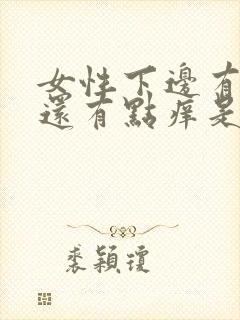 女性下邊有
還有點痒是
裘穎瓊